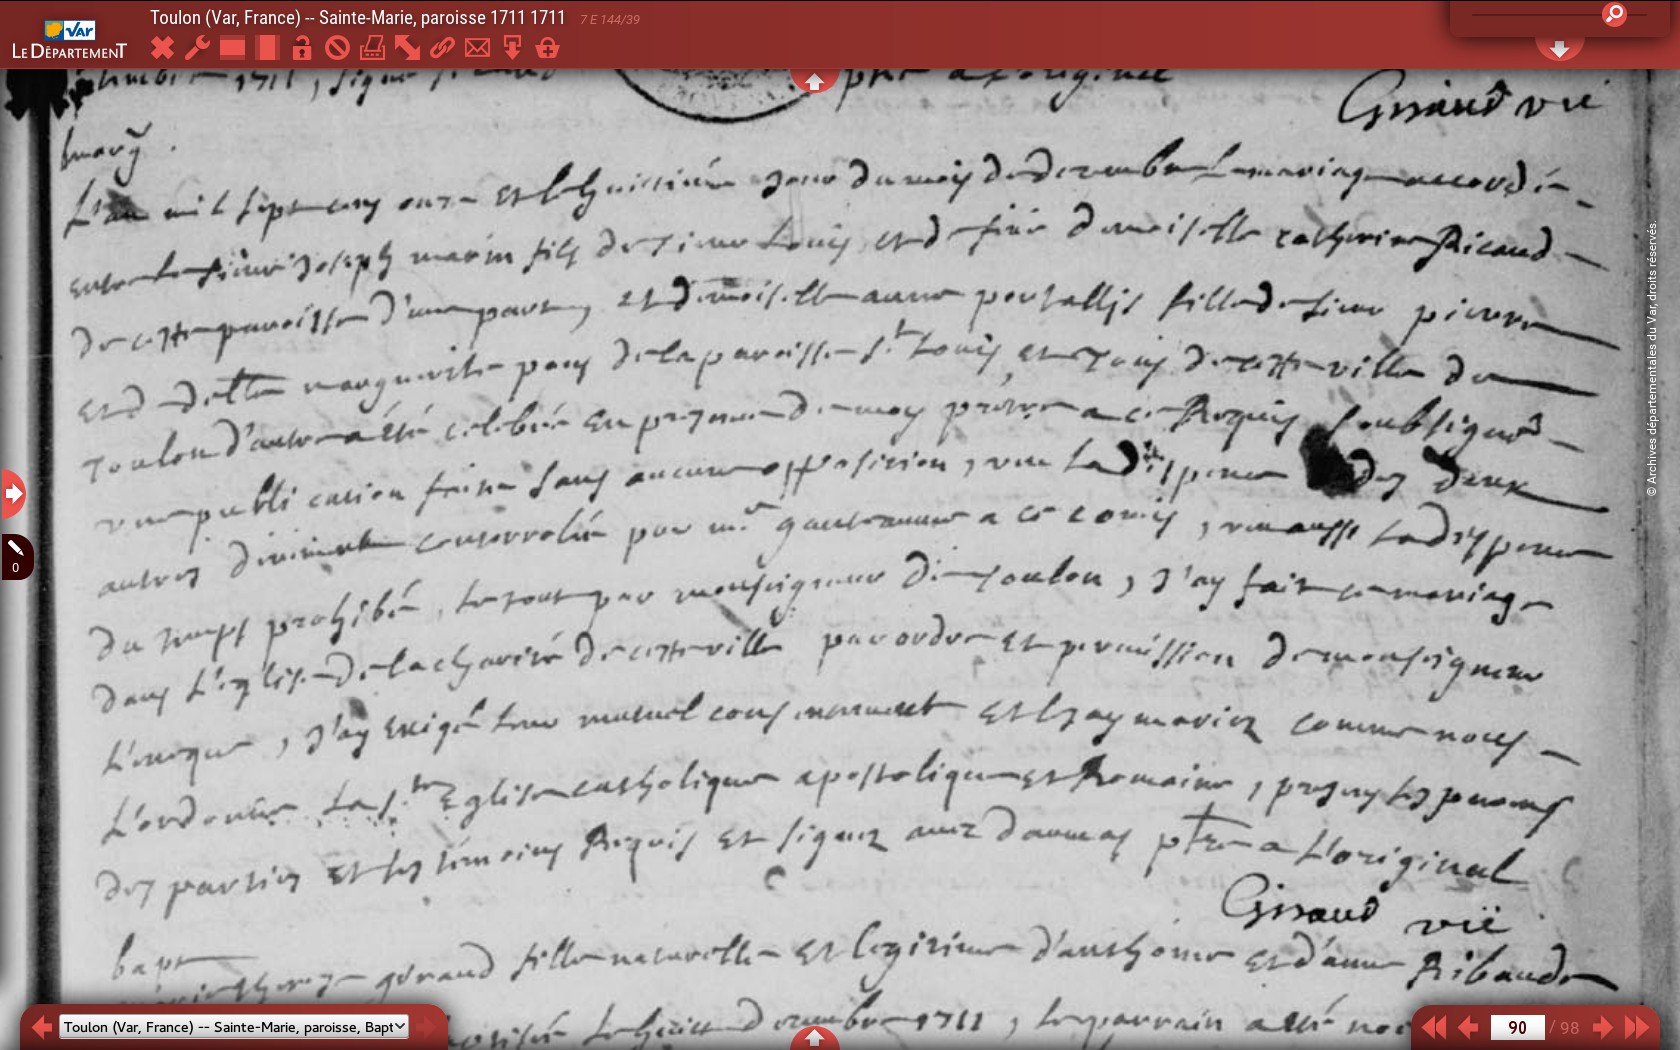 Toulon (Var, France) -- Sainte-Marie, paroisse 1711 1711 7 E 144/39
VAR
LE DÉPARTEMENT
1711, signé a L'original
Giraud vic
mary
L'an mil sept cens onze et le huictiéme jour du mois de decembre le mariage accordé
entre le sieur Joseph marin fils de sieur Louis et de feüe demoiselle catherine Ricaud
de cette paroisse d'une part, et demoiselle anne portallis fille de sieur pierre
et de delle marguerite pons de la paroisse st Louis, et tous de cette ville de
Toulon d'autre a été celebré en presence de moy pretre a ce Requis soubsigné
une publication faitte sans aucune opposition, veu la dispense des deux
autres düement controolée par mr gautier a ce comis, veu aussi la dispense
du temps prohibé, le tout par monseigneur de Toulon, J'ay fait ce mariage
dans L'eglise de la charité de cette ville par ordre et permission de monseigneur
L'eveque, J'ay exigé leur mutuel consentement et les ay mariez comme nous
L'ordonne la ste Eglise catholique apostolique et Romaine, presens les parens
des parties et les témoins Requis et signez avec daumas ptre a L'original
Giraud vic
bapt
gèraud fille naturelle et legitime d'anthoine et d'anne Ribaude
le huit decembre 1711, le parrain a été
© Archives départementales du Var, droits réservés.
0
Toulon (Var, France) -- Sainte-Marie, paroisse, Bapt
90 / 98